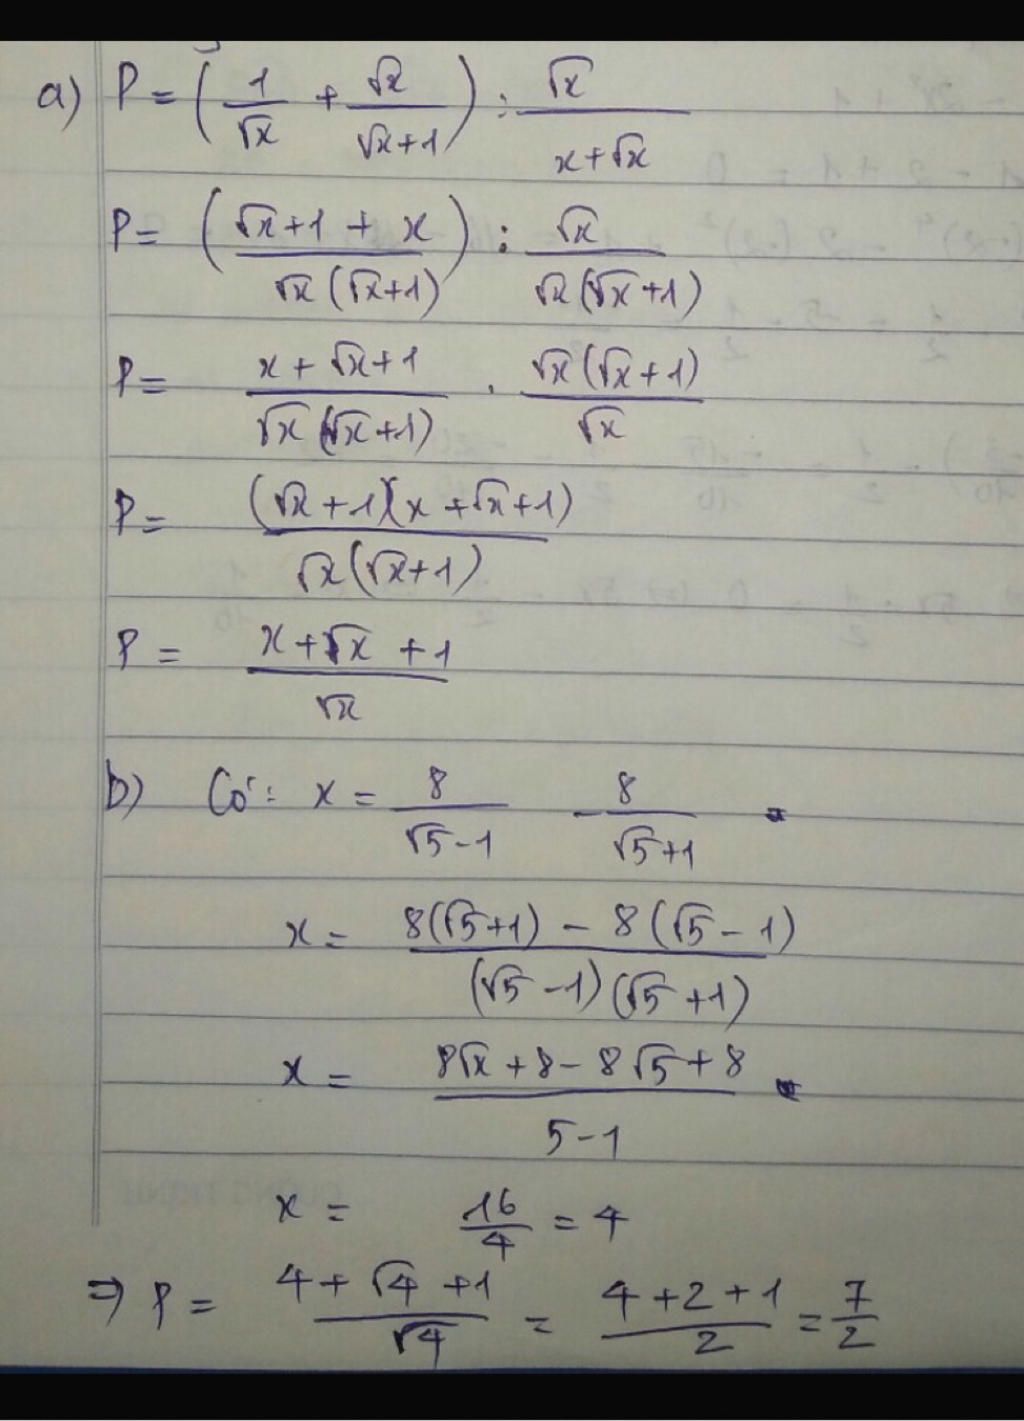 a) P = (1/√x + √x/(√x+1)) : √x/(x+√x)
P = ((√x+1+x)/(√x(√x+1))) : √x/(√x(√x+1))
P = (x+√x+1)/(√x(√x+1)) . (√x(√x+1))/√x
P = ((√x+1)(x+√x+1))/(√x(√x+1))
P = (x+√x+1)/√x
b) Có: x = 8/(√5-1) - 8/(√5+1) =
x = (8(√5+1) - 8(√5-1))/((√5-1)(√5+1))
x = (8√x+8-8√5+8)/(5-1)
x = 16/4 = 4
⇒ P = (4+√4+1)/√4 = (4+2+1)/2 = 7/2